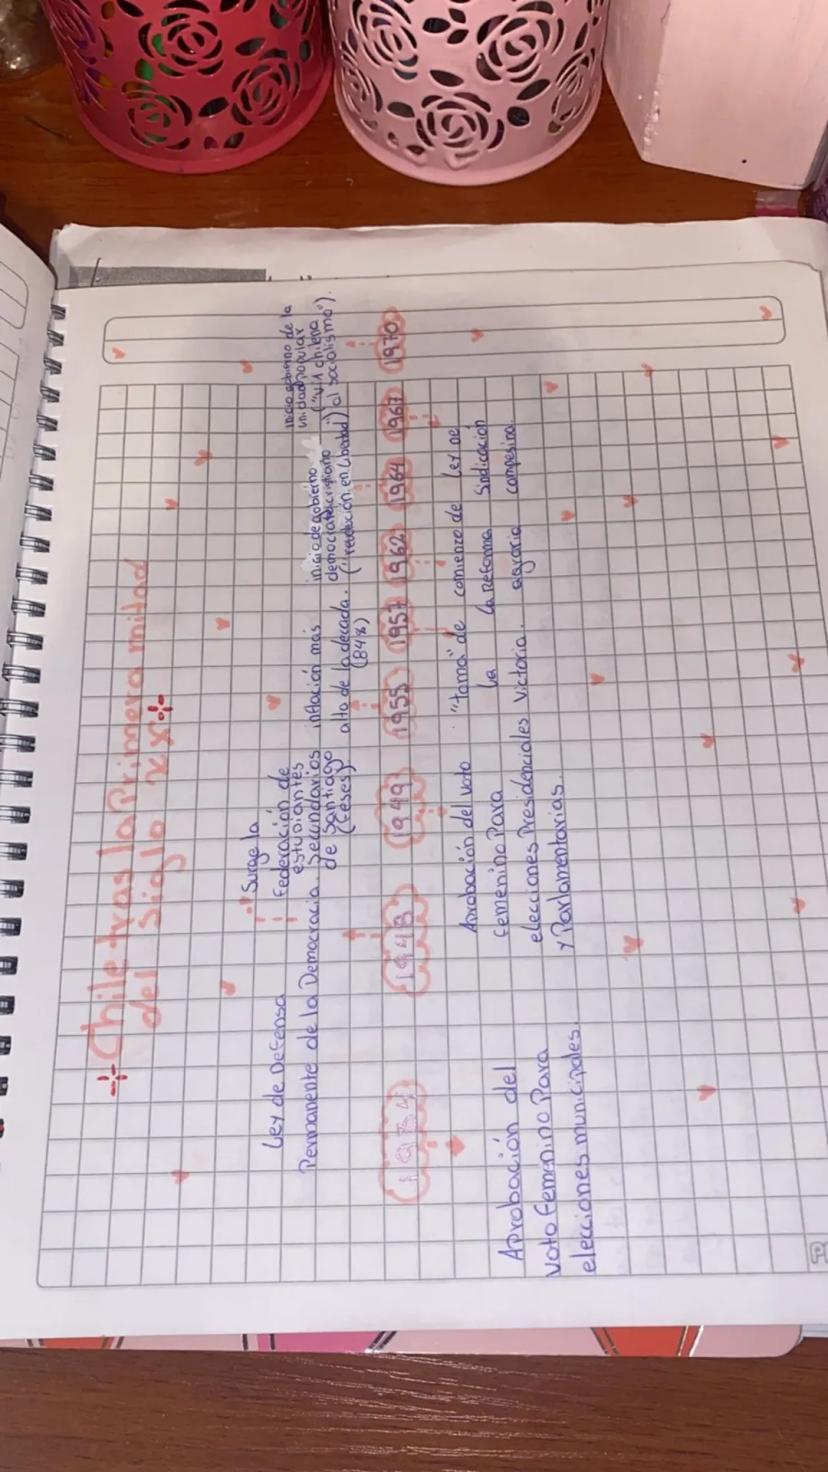 Chile tras la Primera mitad
del siglo XX
Ley de Defensa
Permanente de la Democracia.
Surge la
Federación de
estudiantes
Secundarios
de Santiago
(Feses)
inflación más
alto de la decada.
(84%)
inicio de gobierno
democratacristiano
("revolución en libertad")
inicio gobierno de la
unidad popular
("vía chilena
al socialismo").
1934
1948
1949
1955
1957
1962
1964
1967
1970
Aprobación del
Voto femenino Para
elecciones municipales.
Aprobación del voto
femenino Para
elecciones Presidenciales
y Parlamentarias.
"toma" de
la
Victoria.
comienzo de
la Reforma
agraria
Ley de
Sindicación
campesina.